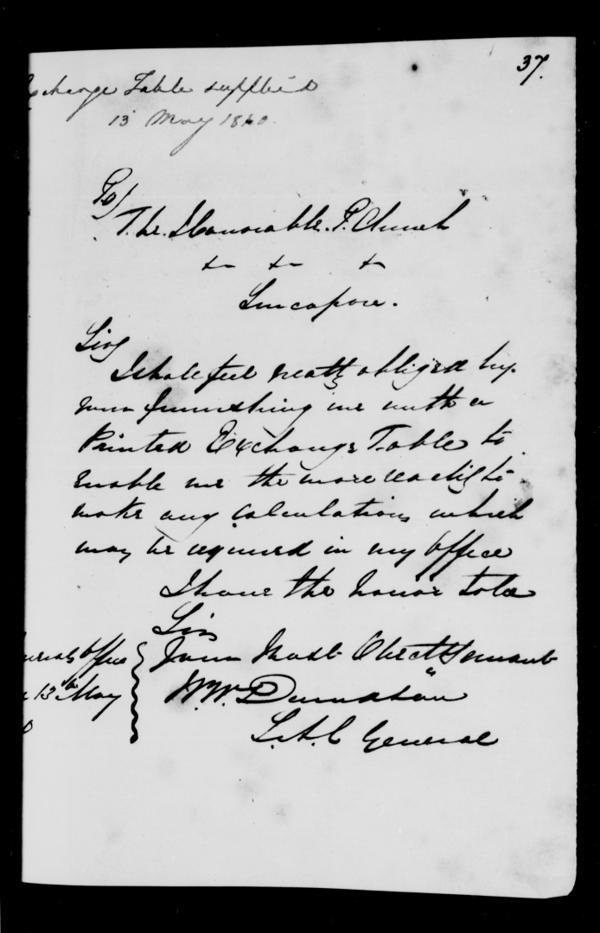 37.
xchange Table supplied
13 May 1840.
To/
The Honorable. T. Church
&c &c &c
Sincapore.
Sir,
I shall feel greatly obliged by
your furnishing me with a
Printed Exchange Table to
enable me the more readily to
make any Calculations which
may be required in my Office
I have the honor to be
Sir
Your Most Obedt Servant
W. W.
S. A. C General
neral's Office
13th May
0